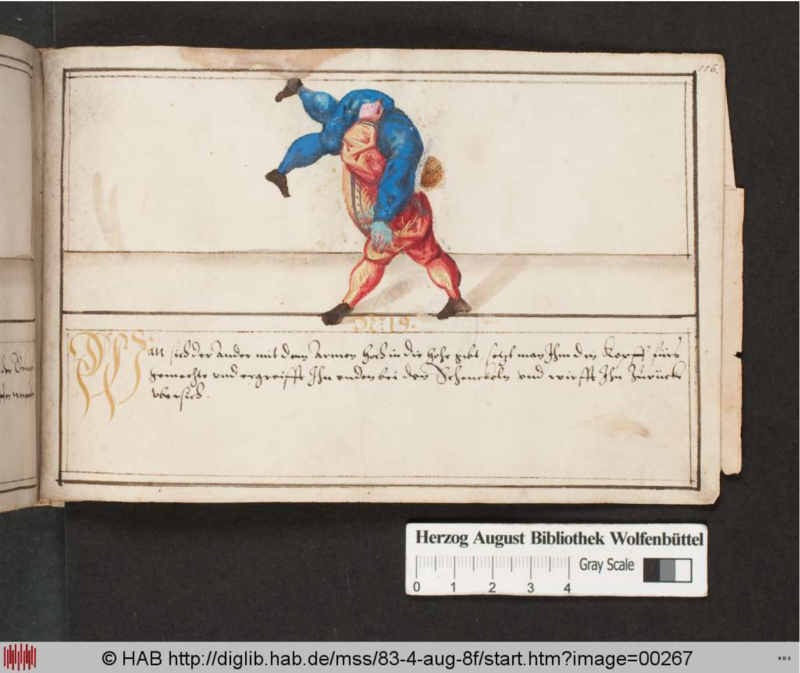 116.
No: 19.
Wan sich der Ander mit dem Armen hoch in die höhe gibt, setzt man Ihm den Kopff fürs
gemechte und ergreifft Ihn unden bei den Schenckeln und wirfft Ihn zurück
ubersich.
Herzog August Bibliothek Wolfenbüttel
Gray Scale
0 1 2 3 4
© HAB http://diglib.hab.de/mss/83-4-aug-8f/start.htm?image=00267